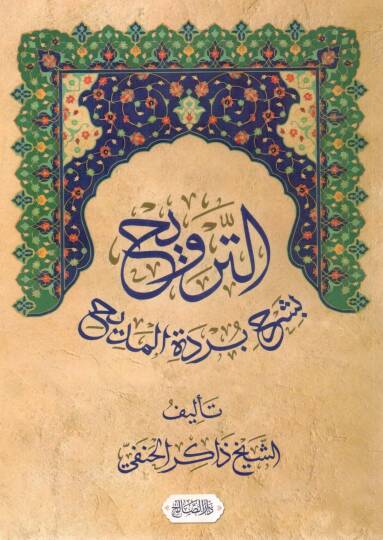 التَّرويح
بشرح بردة المديح
تأليف
الشيخ ذاكر الحنفيّ
دار الصالح